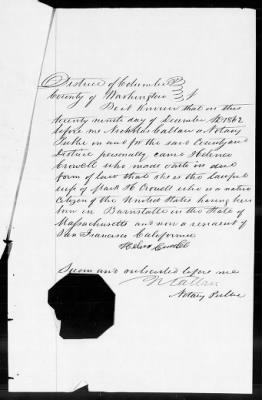 District of Columbia
County of Washington
Be it Known that on this
twenty ninth day of December AD 1862
before me Nicholas Callan a Notary
Public in and for the said County and
District personally came Helena
Crowell who made oath in due
form of law that she is the lawful
wife of Mark H. Crowell who is a native
Citizen of the United States having been
born in Barnstable in the State of
Massachusetts and now a resident of
San Francisco California
Crowell
Sworn and subscribed before me
N Callan
Notary Public